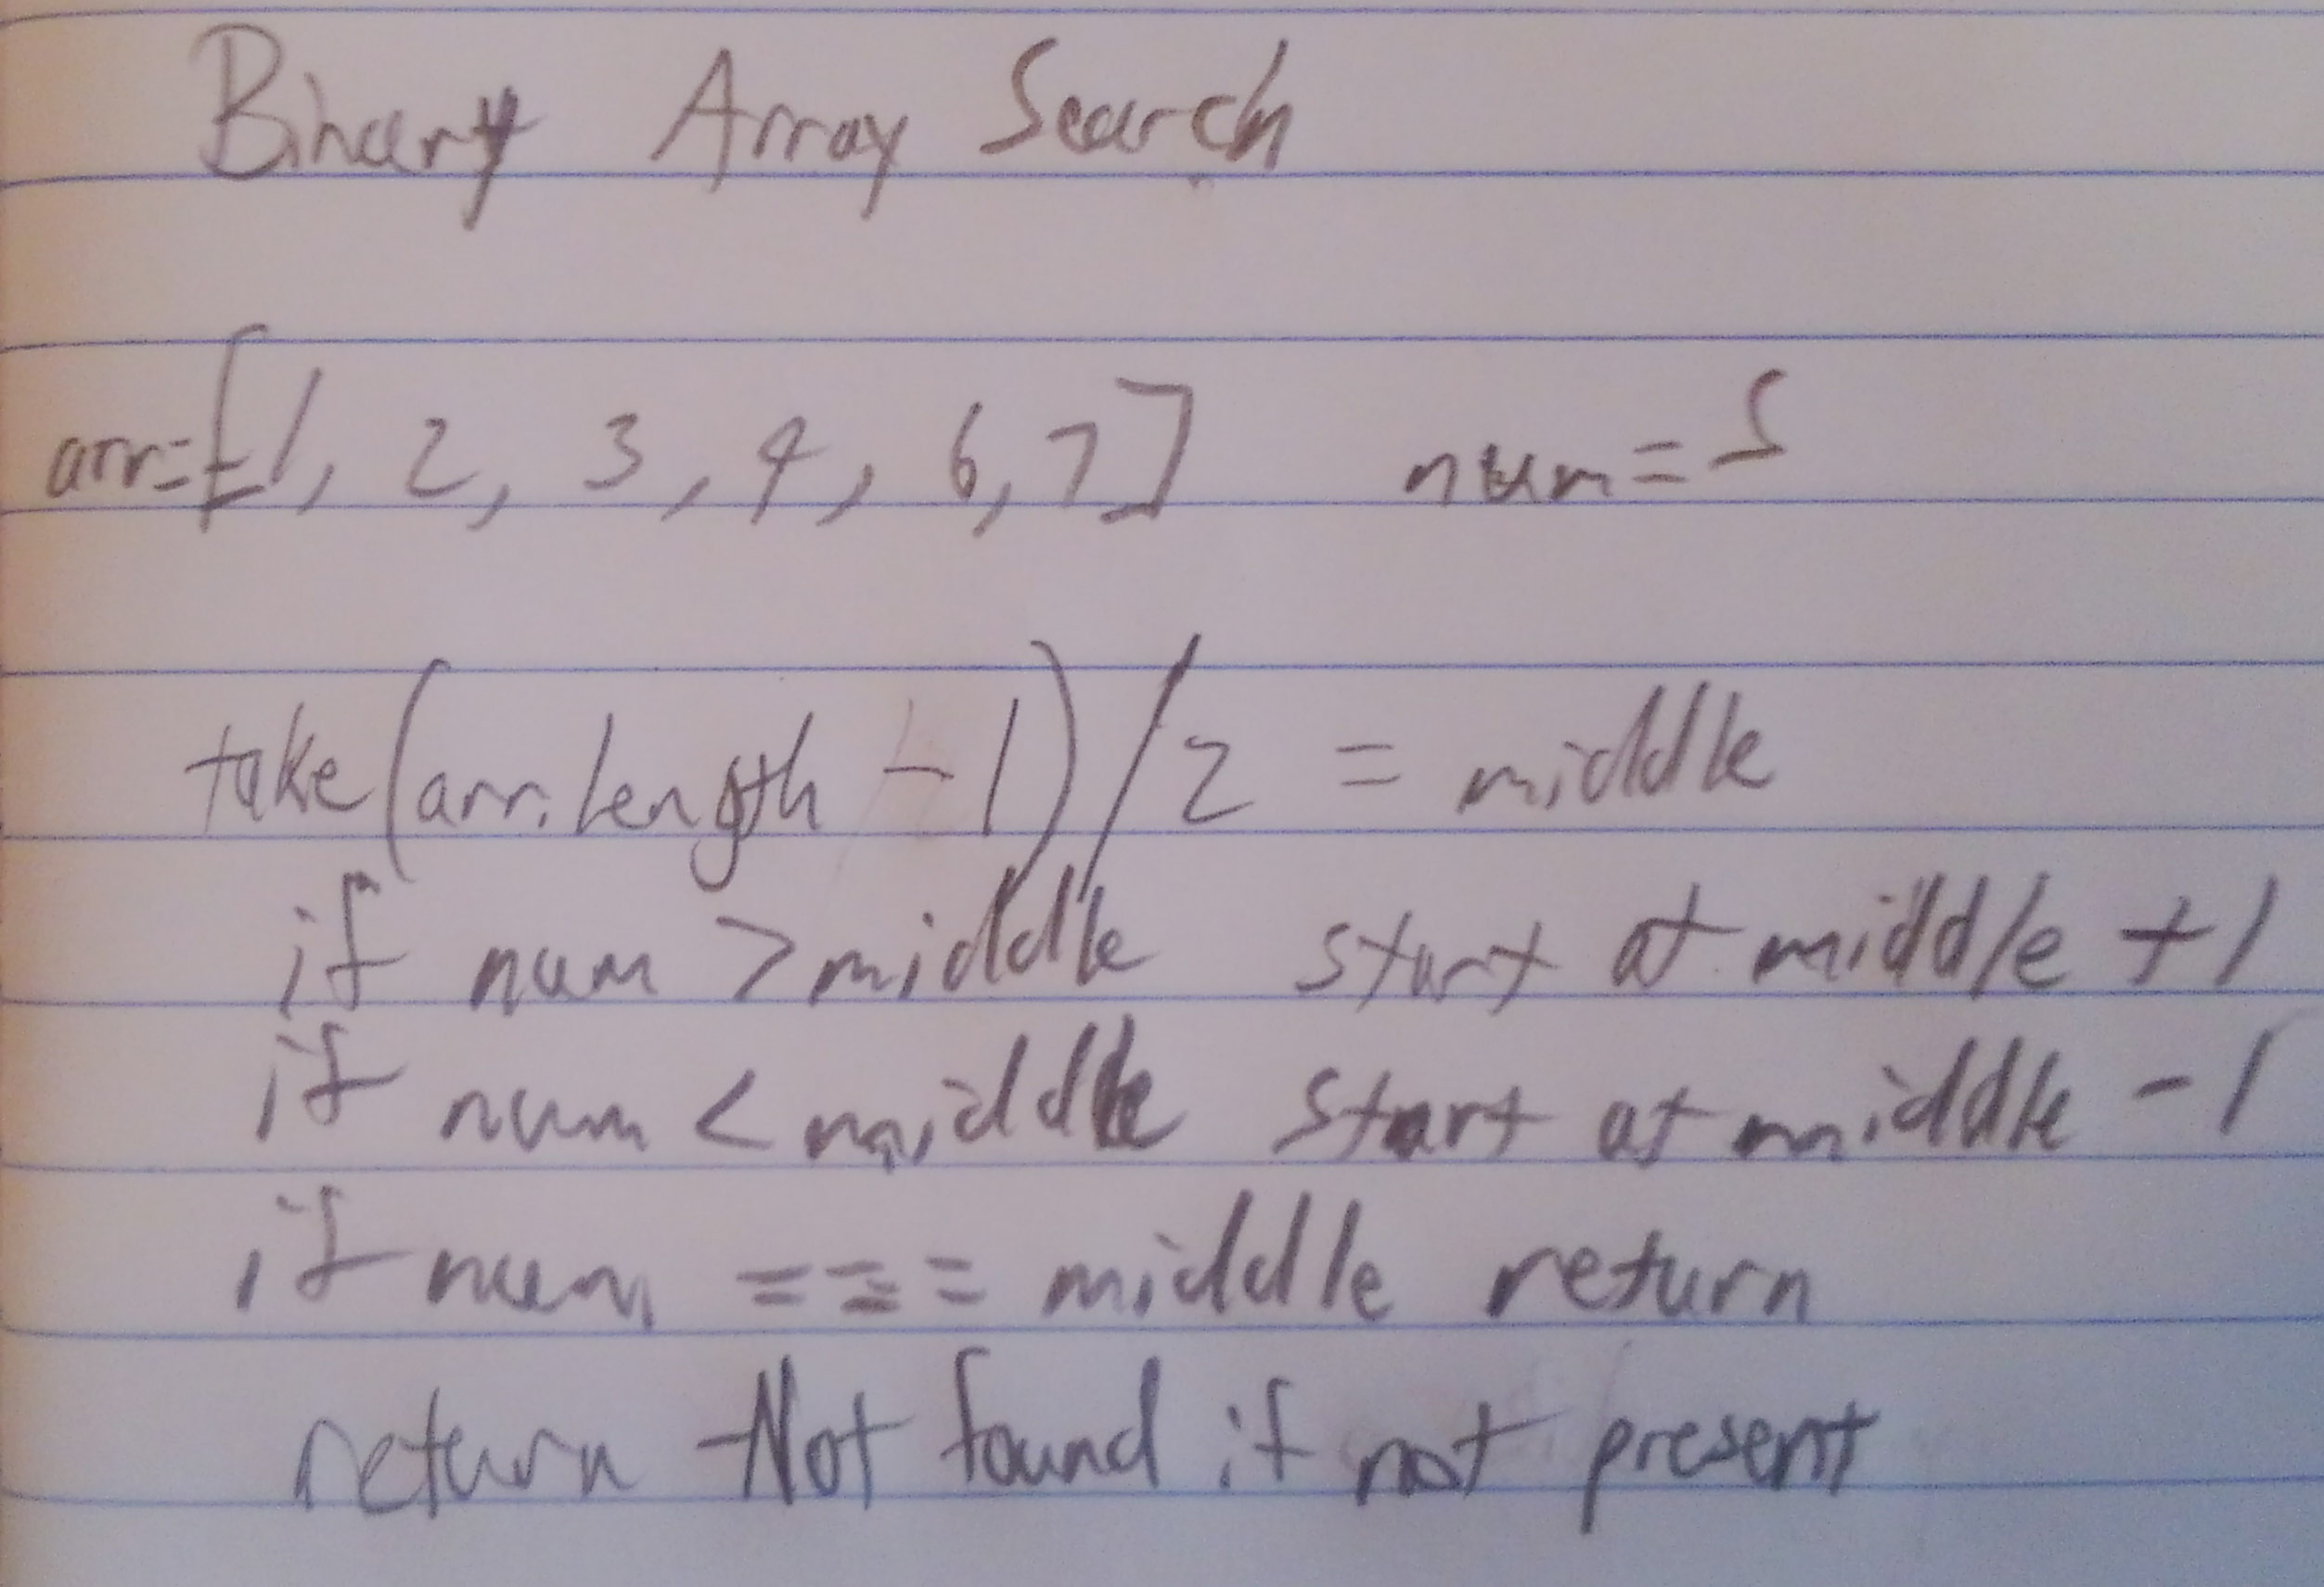 Binary Array Search
arr=[1, 2, 3, 4, 6, 7] num=5
take(arr.length -1)/2 = middle
if num > middle start at middle +1
if num < middle start at middle -1
if num === middle return
return Not found if not present